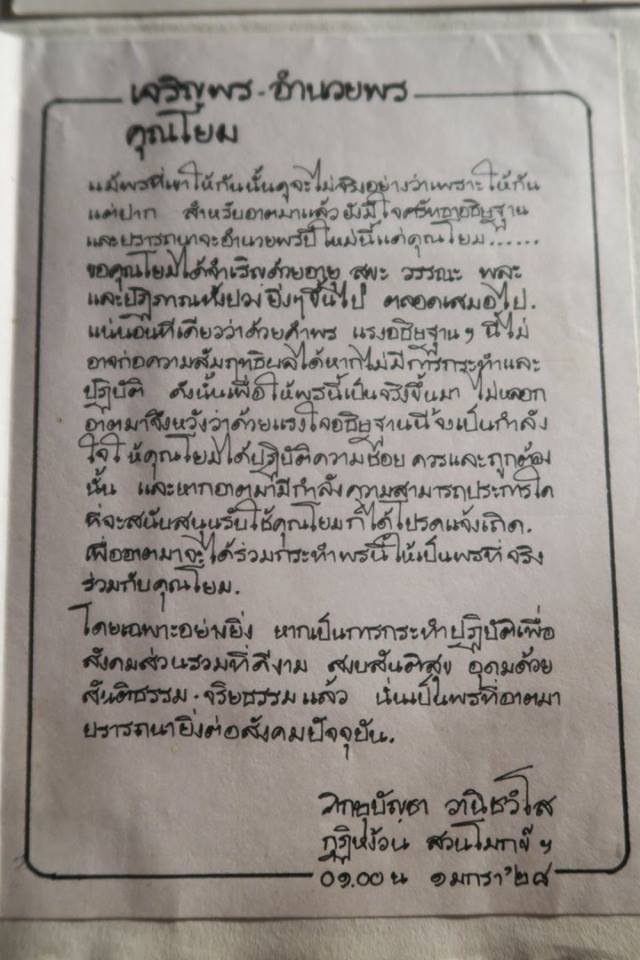 เจริญพร - อำนวยพร
คุณโยม
แม้พรที่เขาให้กันนั้นดูจะไม่จริงอย่างว่าเพราะให้กัน
แต่ปาก สำหรับอาตมาแล้วยังมีใจศรัทธาอธิษฐาน
และปรารถนาจะอำนวยพรปีใหม่นี้แด่คุณโยม......
ขอคุณโยมได้สำเร็จด้วยอายุ สุขะ วรรณะ พละ
และปฏิภาณทั้งปวง ยิ่งๆขึ้นไป ตลอดเสมอไป.
แน่นอนทีเดียวว่าด้วยคำพร แรงอธิษฐานๆ นี้ไม่
อาจก่อความสัมฤทธิผลได้หากไม่มีการกระทำและ
ปฏิบัติ ดังนั้นเพื่อให้พรนี้เป็นจริงขึ้นมา ไม่หลอก
อาตมาจึงหวังว่าด้วยแรงใจอธิษฐานนี้จงเป็นกำลัง
ใจให้คุณโยมได้ปฏิบัติความชอบ ควรและถูกต้อง
นั้น และหากอาตมามีกำลังความสามารถประการใด
ที่จะสนับสนุนรับใช้คุณโยมก็ได้โปรดแจ้งเถิด.
เพื่ออาตมาจะได้ร่วมกระทำพรนี้ให้เป็นพรที่จริง
ร่วมกับคุณโยม.
โดยเฉพาะอย่างยิ่ง หากเป็นการกระทำปฏิบัติเพื่อ
สังคมส่วนรวมที่ดีงาม สงบสันติสุข อุดมด้วย
สันติธรรม - จริยธรรมแล้ว นั่นเป็นพรที่อาตมา
ปรารถนายิ่งต่อสังคมปัจจุบัน.
ภิกขุบัญชา วานิชวํโส
กุฏิหง้วน สวนโมกข์ฯ
๐๑.๐๐ น ๑ มกรา'๒๘